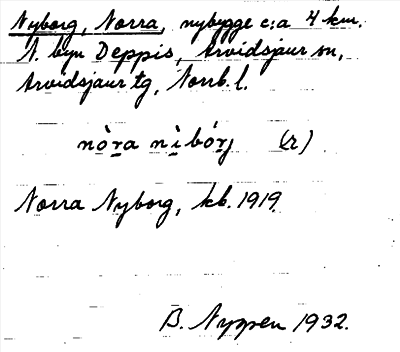 Nyborg, Norra, nybygge c:a 4 km.
N. byn Deppis, Arvidsjaur sn,
Arvidsjaur tg, Norrb. l.
nòra nìbórj (r)
Norra Nyborg, kb. 1919.
B. Nyppen 1932.